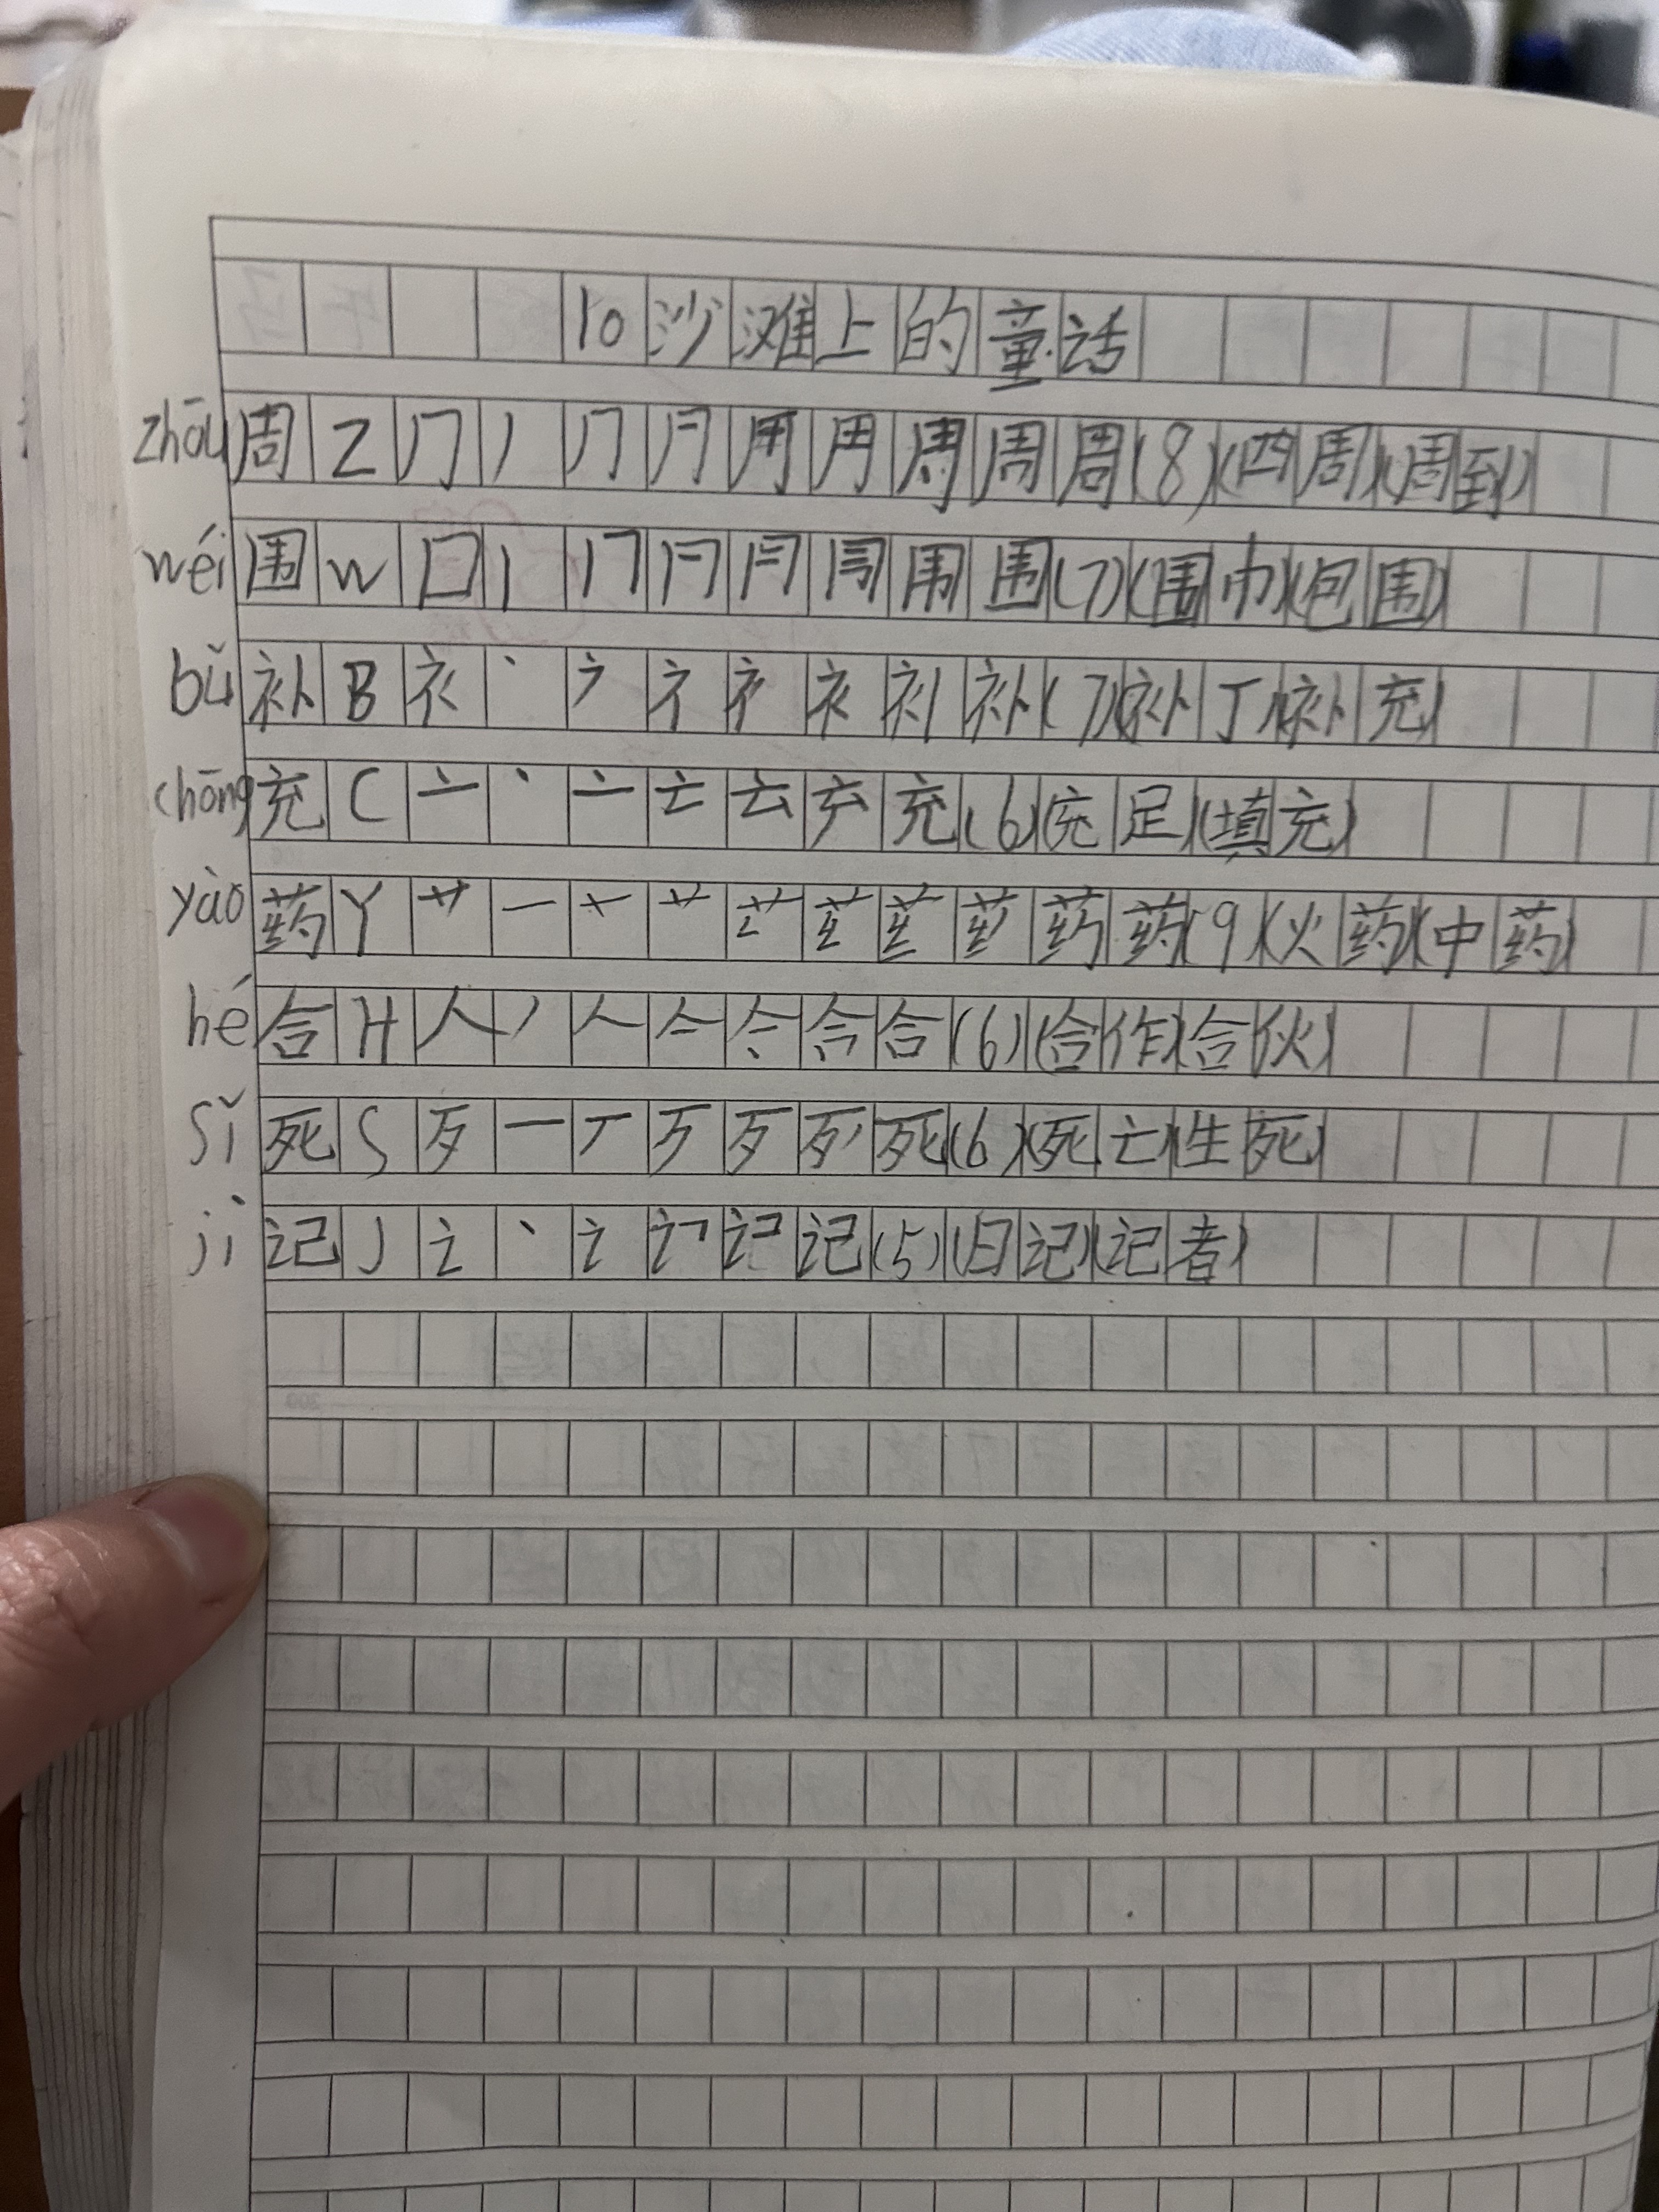 10 沙滩上的童话
zhōu 周 Z 冂 丿 冂 ⺆ 用 周 (8) (四周) (周到)
wéi 围 W 囗 丨 冂 围 (7) (围巾) (包围)
bǔ 补 B 衤 丶 衤 补 (7) (补丁) (补充)
chōng 充 C 亠 丶 亠 云 充 (6) (充足) (填充)
yào 药 Y 艹 一 艹 药 (9) (火药) (中药)
hé 合 H 人 丿 人 亼 合 (6) (合作) (合伙)
sǐ 死 S 歹 一 丆 歹 死 (6) (死亡) (生死)
jì 记 J 讠 丶 讠 记 (5) (日记) (记者)